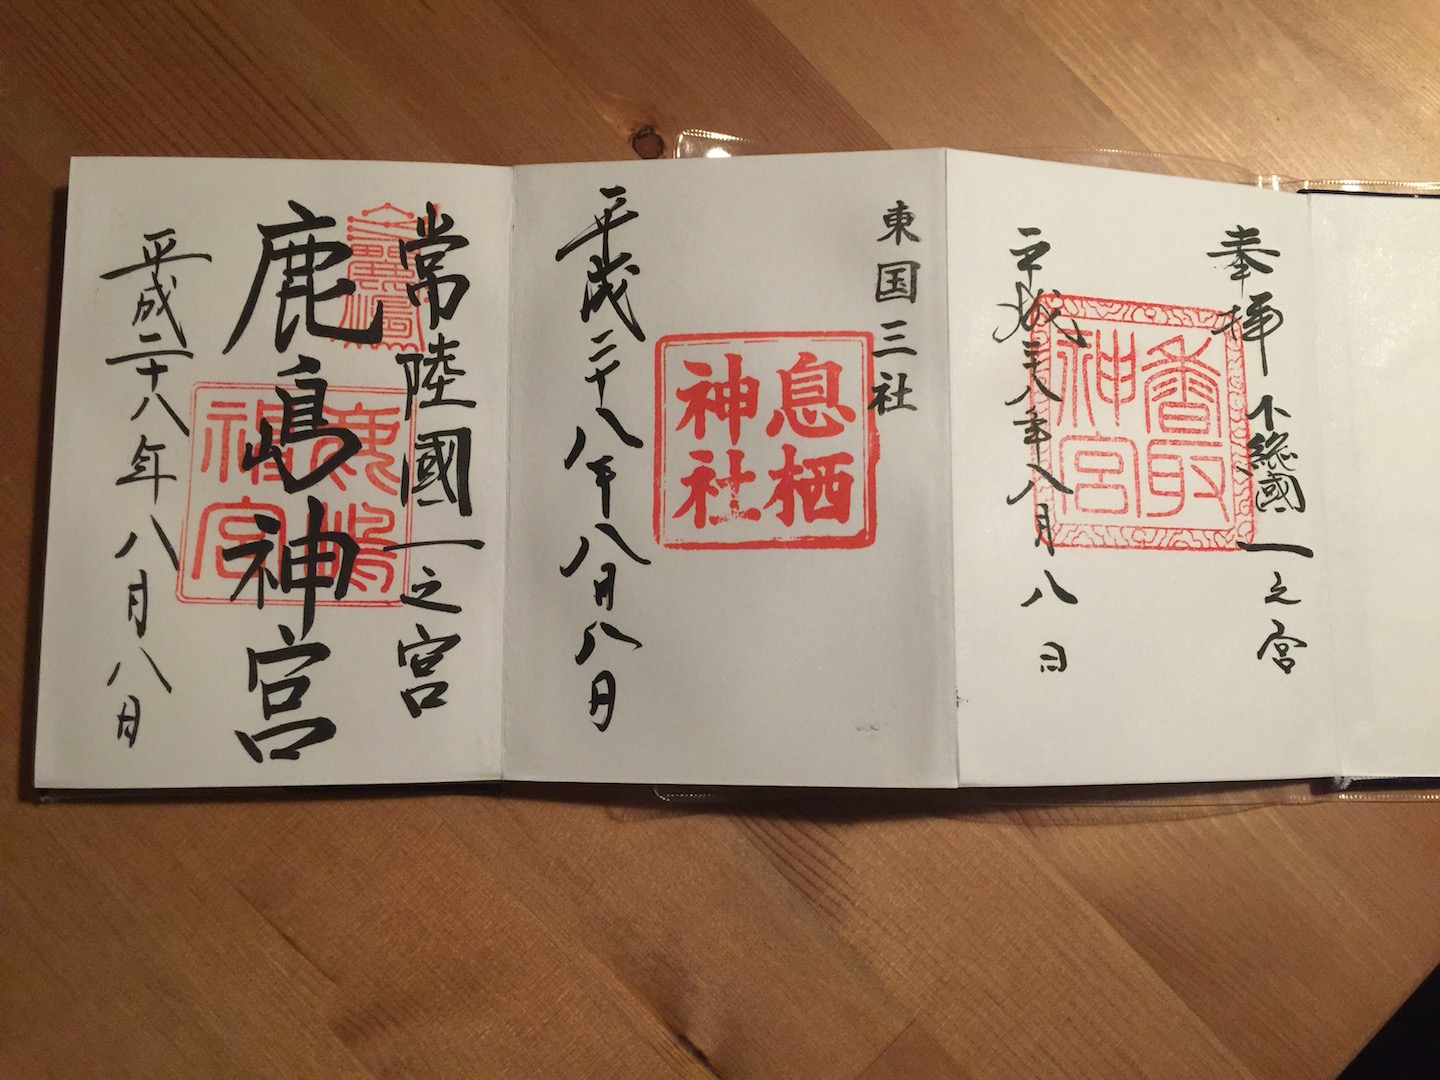 奉拝
下総國一之宮
香取神宮
平成二八年八月八日
東国三社
息栖神社
平成二十八年八月八日
常陸國一之宮
鹿島神宮
鹿嶋神宮
平成二十八年八月八日